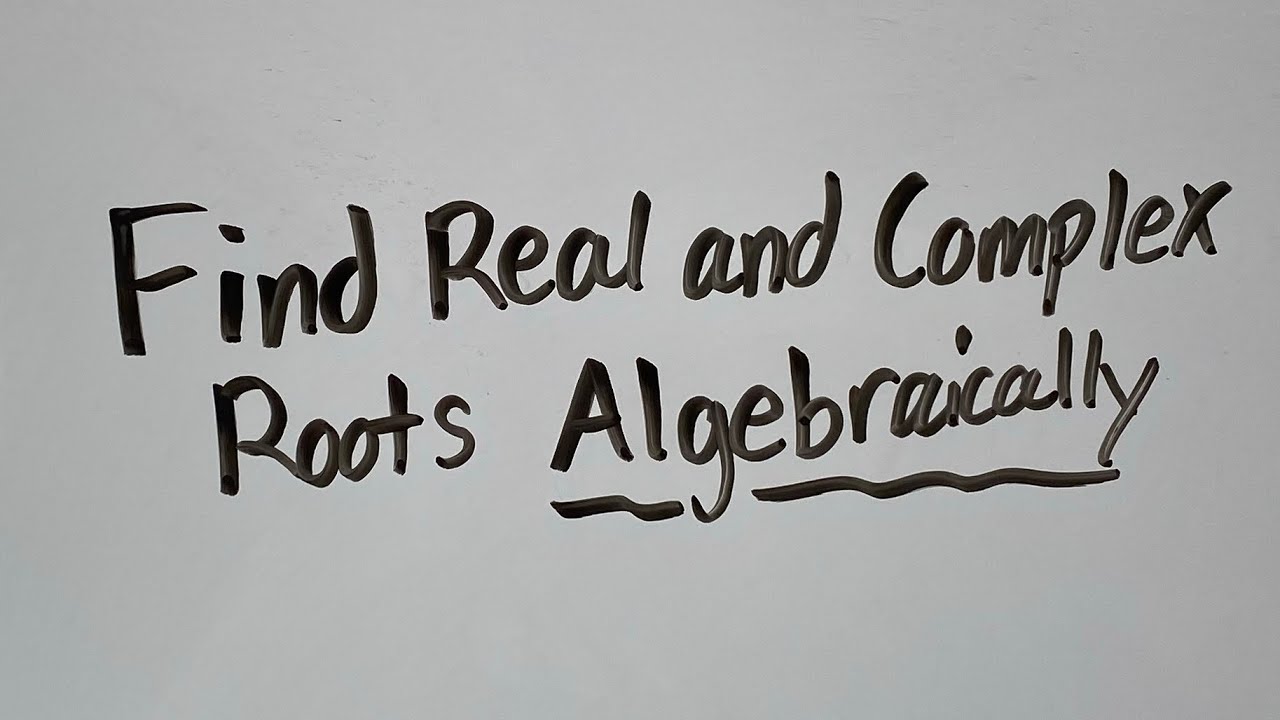 Find Real and Complex
Roots Algebraically